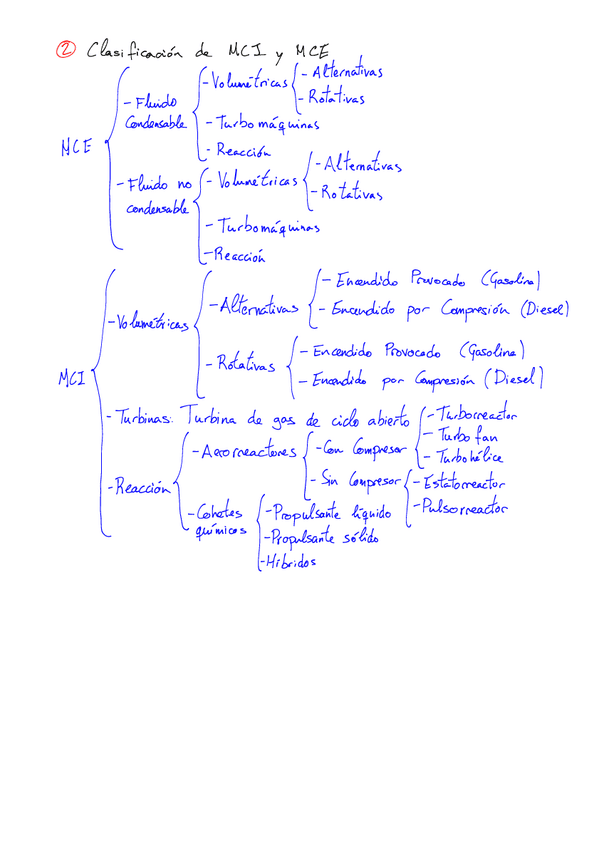 ② Clasificación de MCI y MCE
MCE
- Fluido condensable
- Volumétricas
- Alternativas
- Rotativas
- Turbomáquinas
- Reacción
- Fluido no condensable
- Volumétricas
- Alternativas
- Rotativas
- Turbomáquinas
- Reacción
MCI
- Volumétricas
- Alternativas
- Encendido Provocado (Gasolina)
- Encendido por Compresión (Diesel)
- Rotativas
- Encendido Provocado (Gasolina)
- Encendido por Compresión (Diesel)
- Turbinas: Turbina de gas de ciclo abierto
- Turborreactor
- Turbo fan
- Turbohélice
- Reacción
- Aerorreactores
- Con Compresor
- Sin Compresor
- Estatorreactor
- Pulsorreactor
- Cohetes químicos
- Propulsante líquido
- Propulsante sólido
- Híbridos